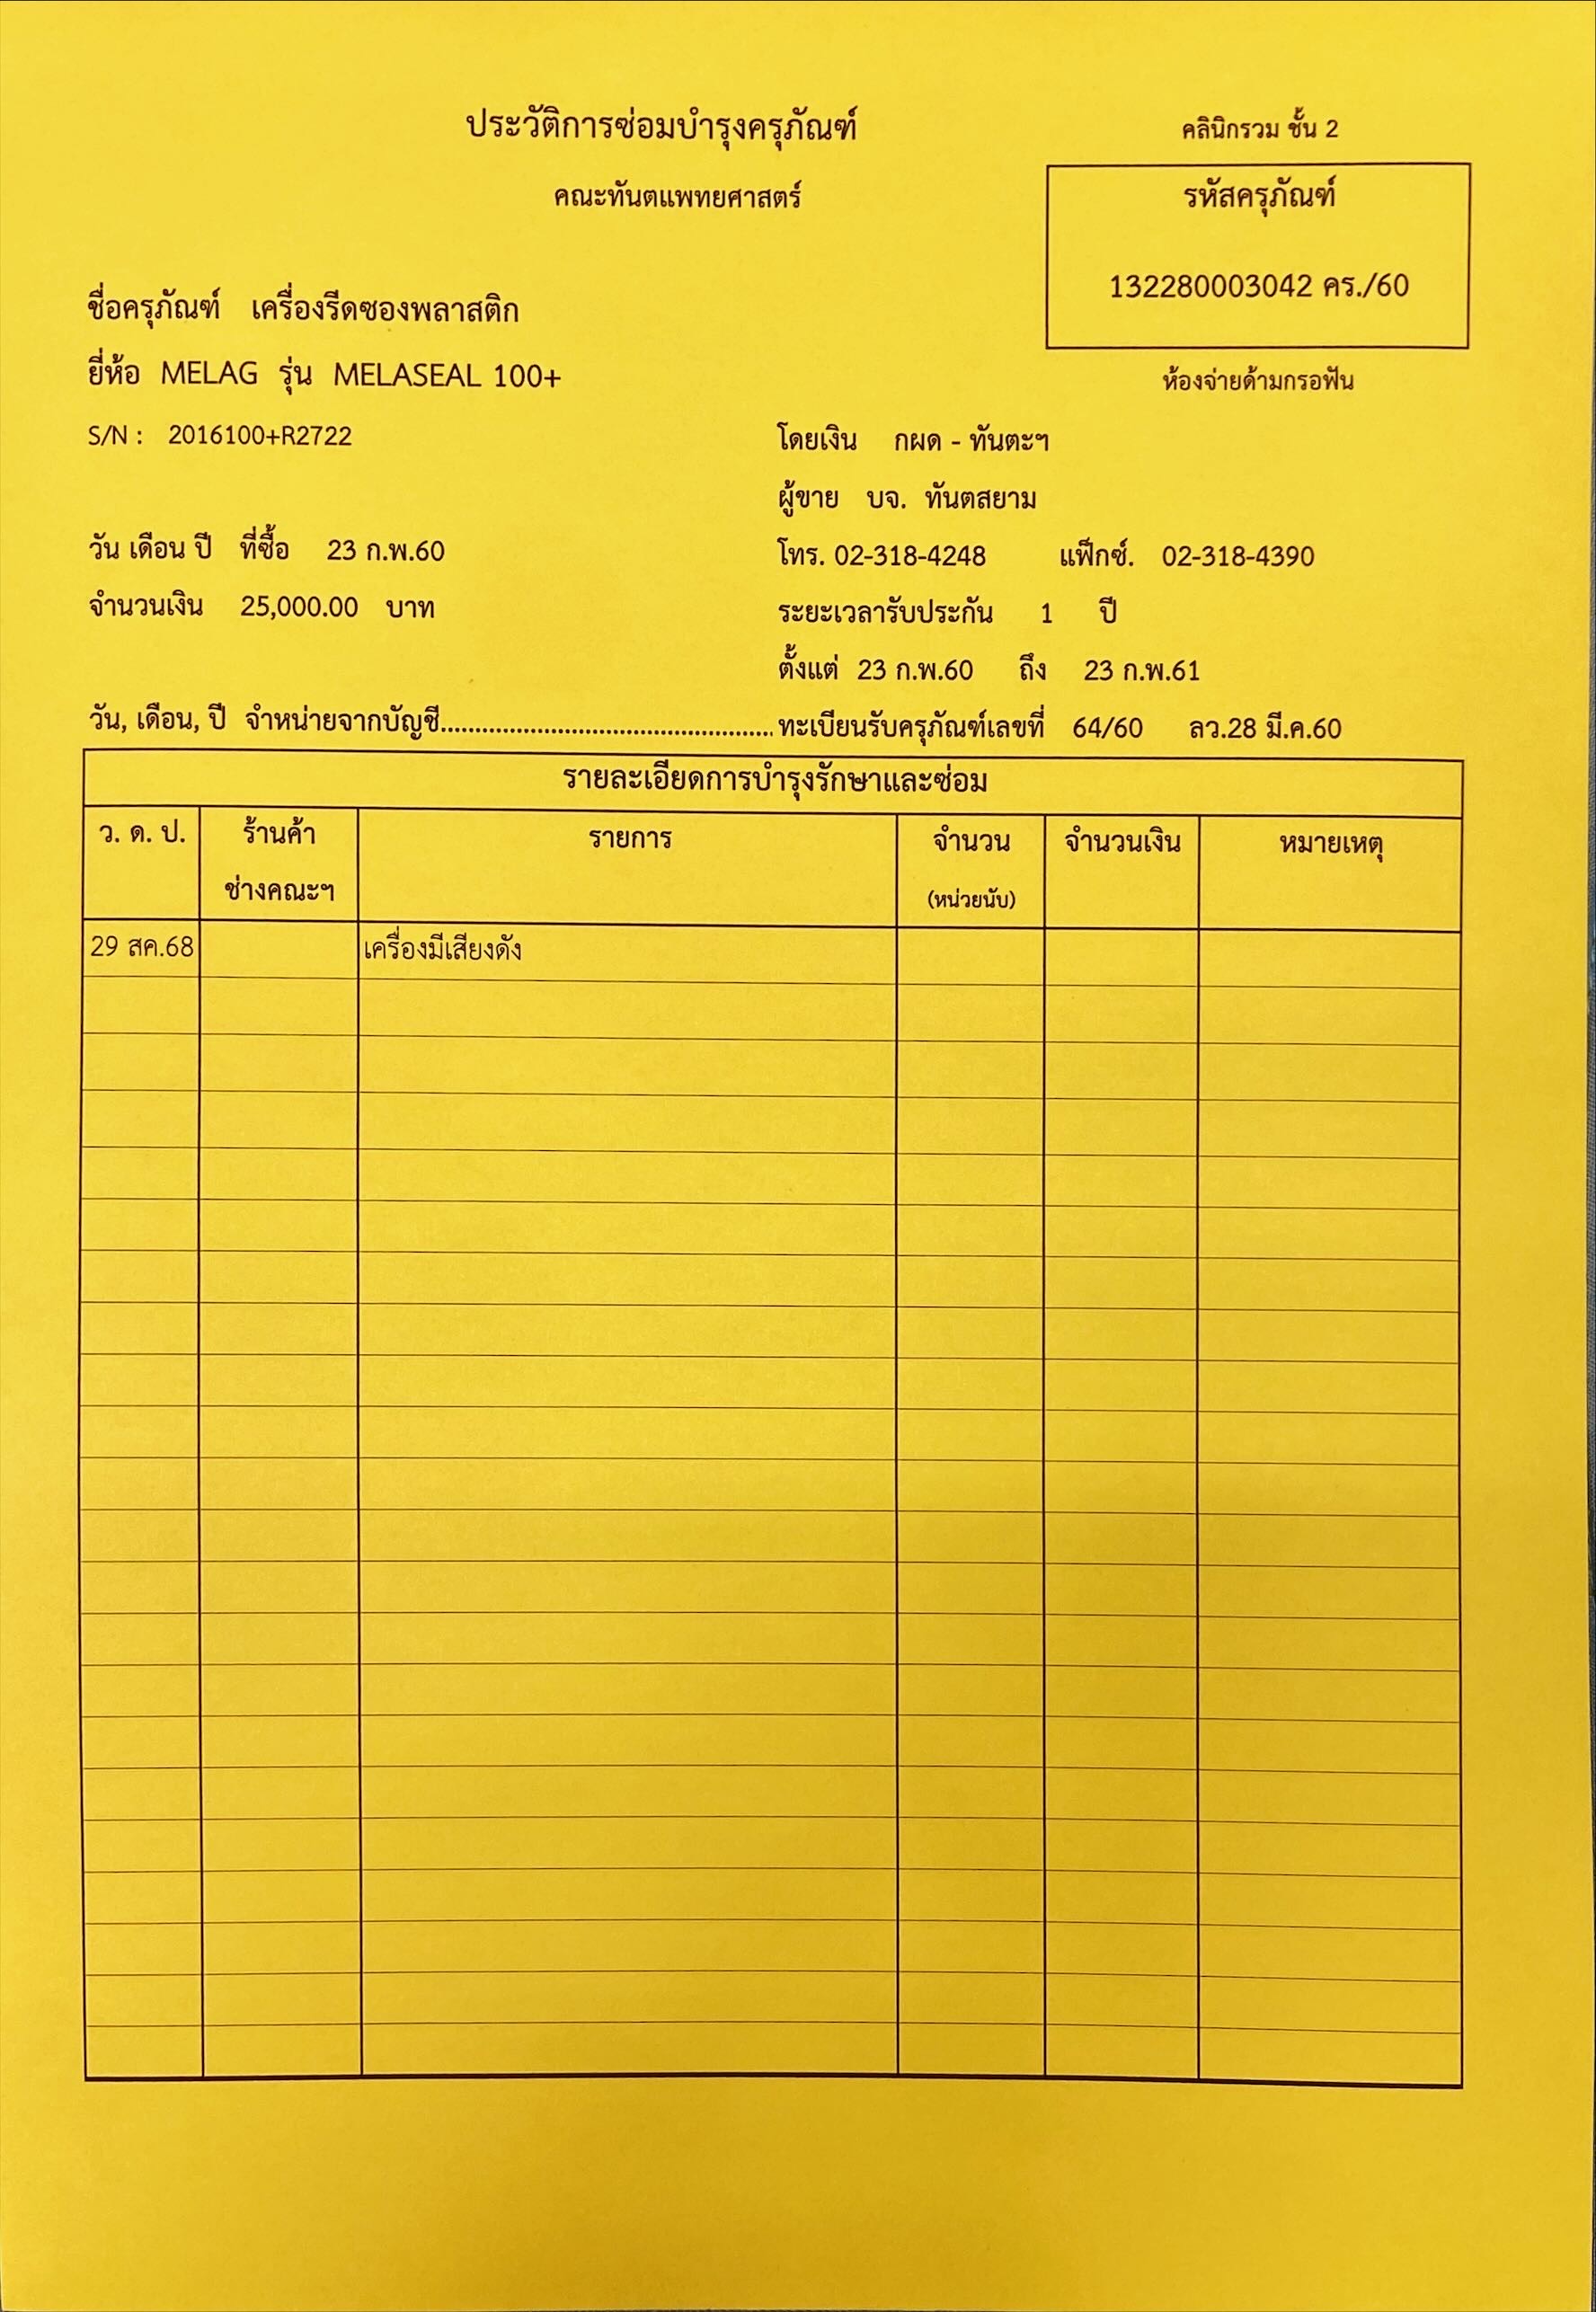 ประวัติการซ่อมบำรุงครุภัณฑ์
คลินิกรวม ชั้น 2
คณะทันตแพทยศาสตร์
รหัสครุภัณฑ์
132280003042 คร./60
ห้องจ่ายด้ามกรอฟัน
ชื่อครุภัณฑ์ เครื่องรีดซองพลาสติก
ยี่ห้อ MELAG รุ่น MELASEAL 100+
S/N : 2016100+R2722
โดยเงิน กผด - ทันตะฯ
ผู้ขาย บจ. ทันตสยาม
วัน เดือน ปี ที่ซื้อ 23 ก.พ.60
โทร. 02-318-4248 แฟ็กซ์. 02-318-4390
จำนวนเงิน 25,000.00 บาท
ระยะเวลารับประกัน 1 ปี
ตั้งแต่ 23 ก.พ.60 ถึง 23 ก.พ.61
วัน, เดือน, ปี จำหน่ายจากบัญชี................................................ทะเบียนรับครุภัณฑ์เลขที่ 64/60 ลว.28 มี.ค.60
รายละเอียดการบำรุงรักษาและซ่อม
ว. ด. ป. ร้านค้า รายการ จำนวน จำนวนเงิน หมายเหตุ
ช่างคณะฯ (หน่วยนับ)
29 สค.68 เครื่องมีเสียงดัง